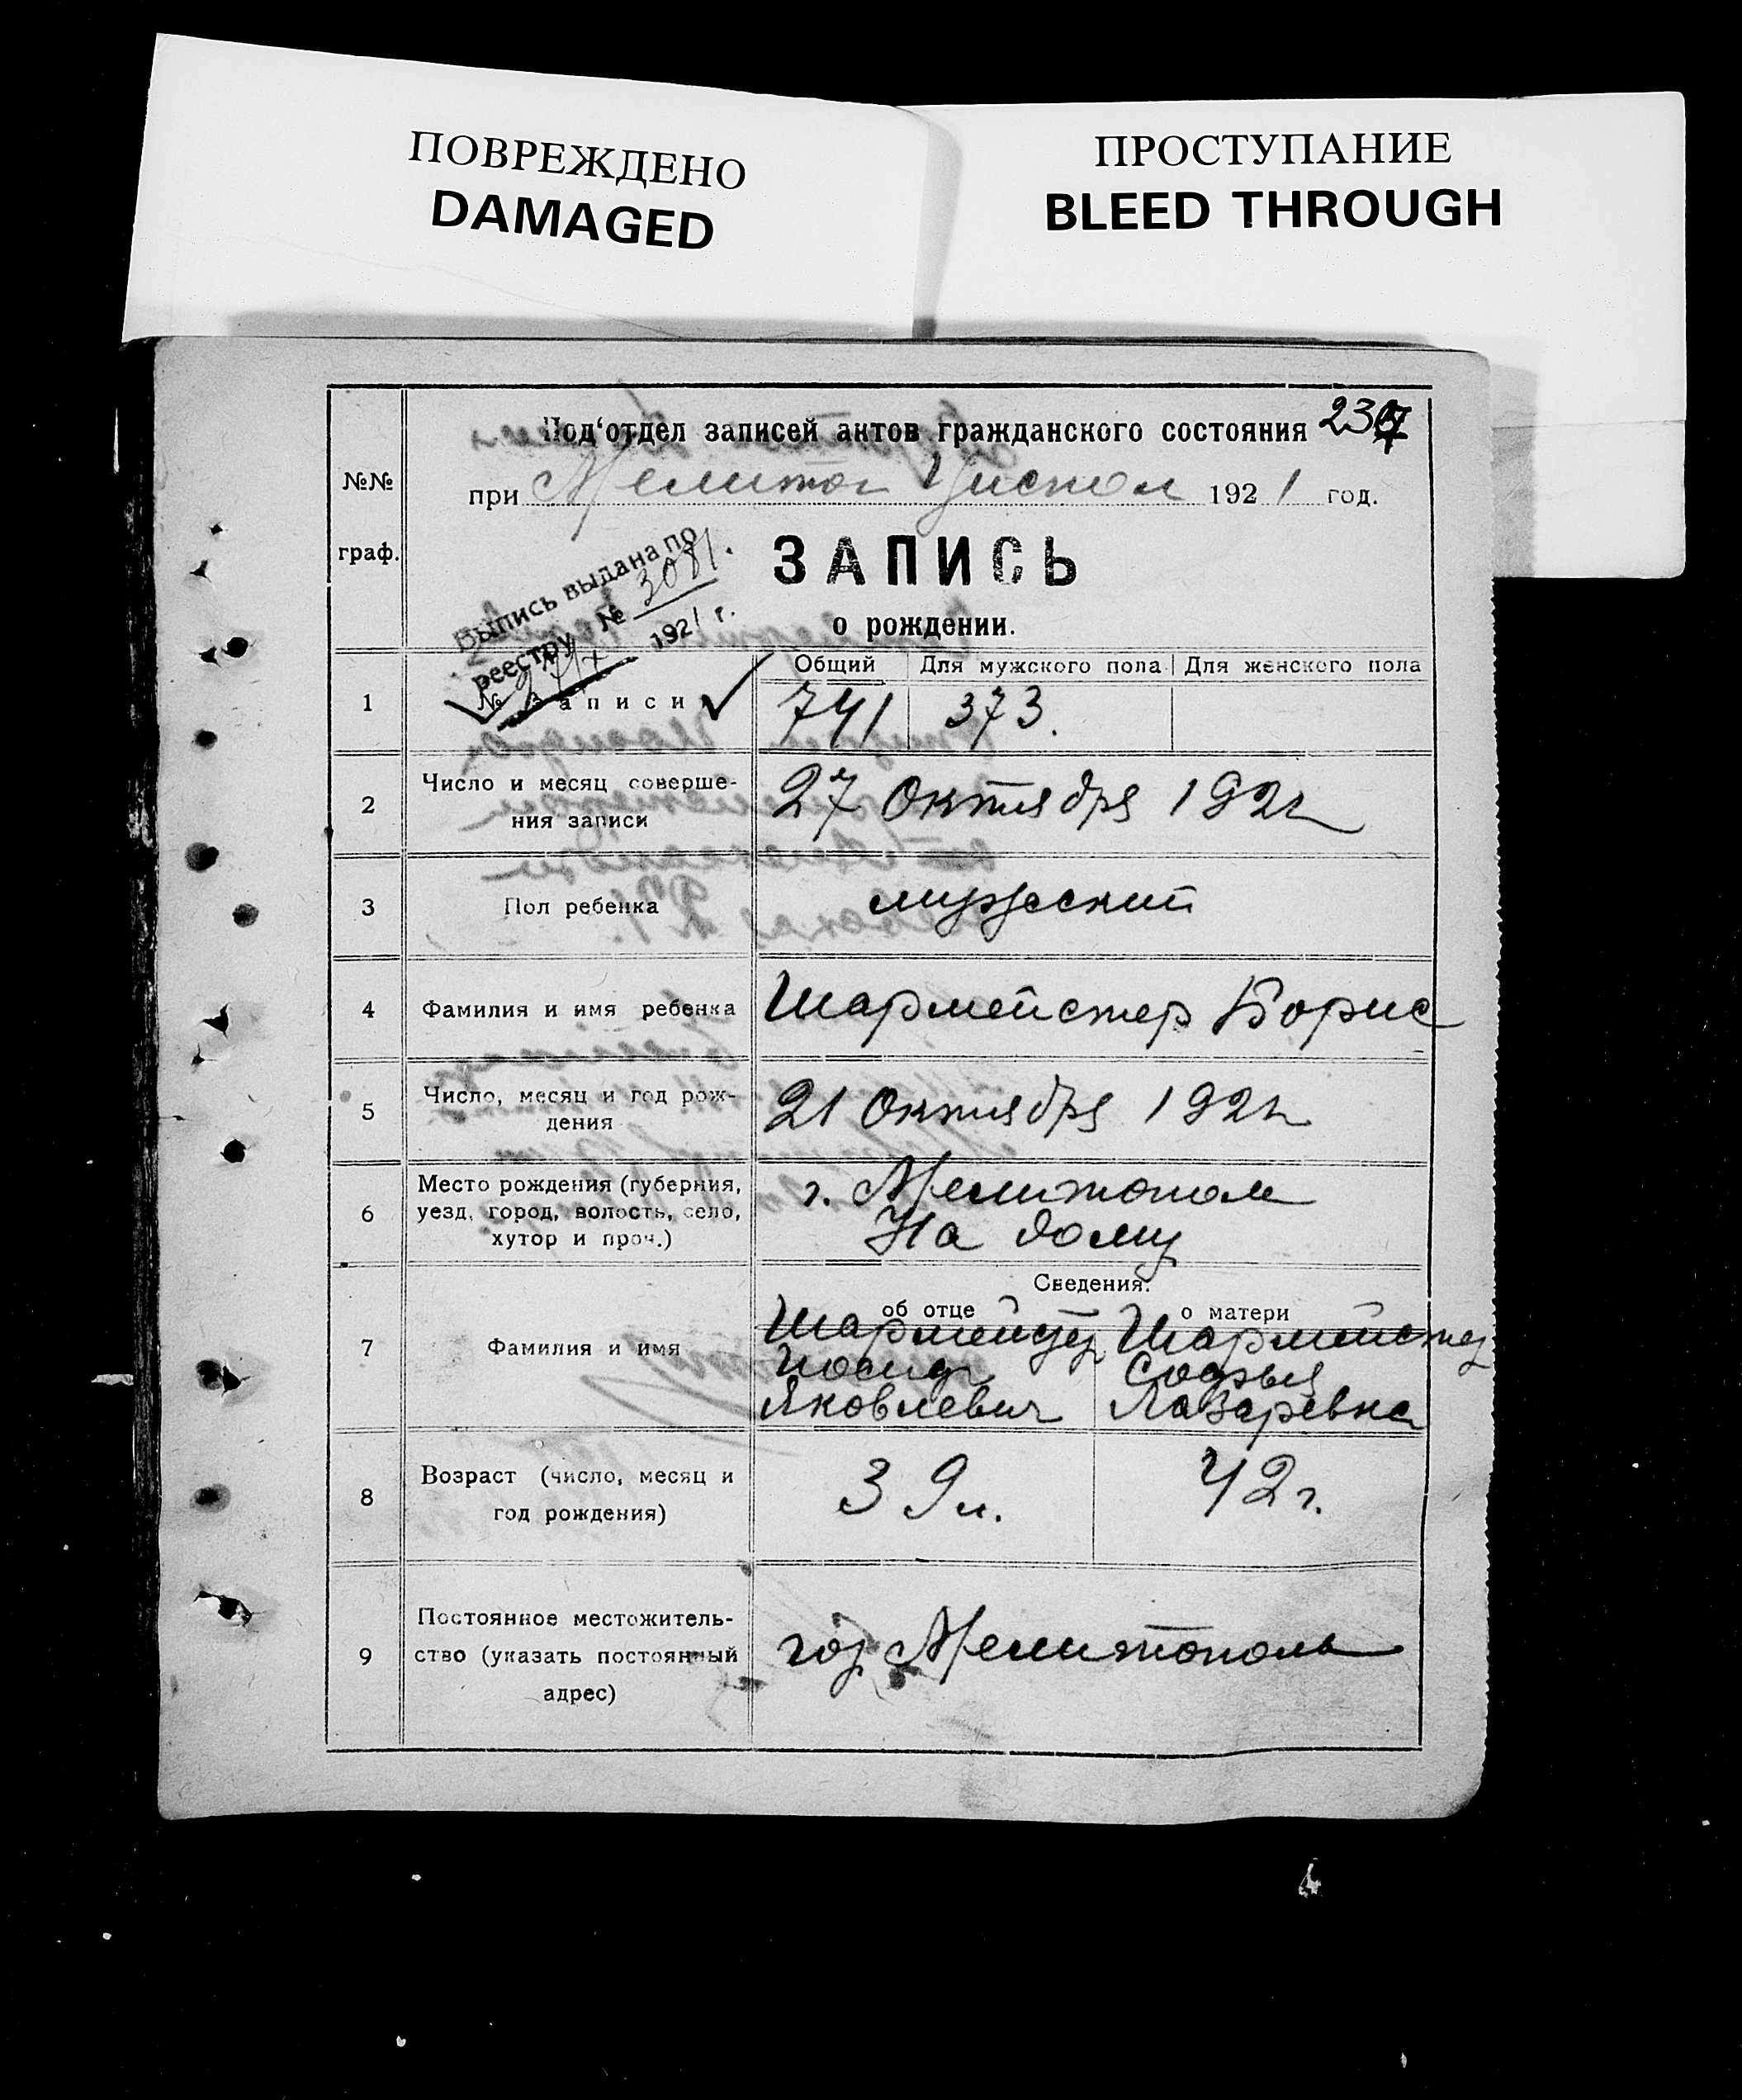 ПОВРЕЖДЕНО
DAMAGED
ПРОСТУПАНИЕ
BLEED THROUGH
Под‘отдел записей актов гражданского состояния
№№
граф.
при Мелитоп Уиспол 1921 год.
ЗАПИСЬ
о рождении.
Выпись выдана по
реестру № 3081.
1921 г.
Общий Для мужского пола Для женского пола
1 № записи 741 373.
2 Число и месяц соверше-
ния записи 27 Октября 1921
3 Пол ребенка мужеский
4 Фамилия и имя ребенка Шармейстер Борис
5 Число, месяц и год рож-
дения 21 Октября 1921
6 Место рождения (губерния,
уезд, город, волость, село,
хутор и проч.)
г. Мелитополе
На дому
Сведения.
об отце о матери
7 Фамилия и имя
Шармейстер
Иосиф
Яковлевич
Шармейстер
Софья
Лазаревна
8 Возраст (число, месяц и
год рождения)
39 л. 42 г.
9 Постоянное местожитель-
ство (указать постоянный
адрес)
гор Мелитополь